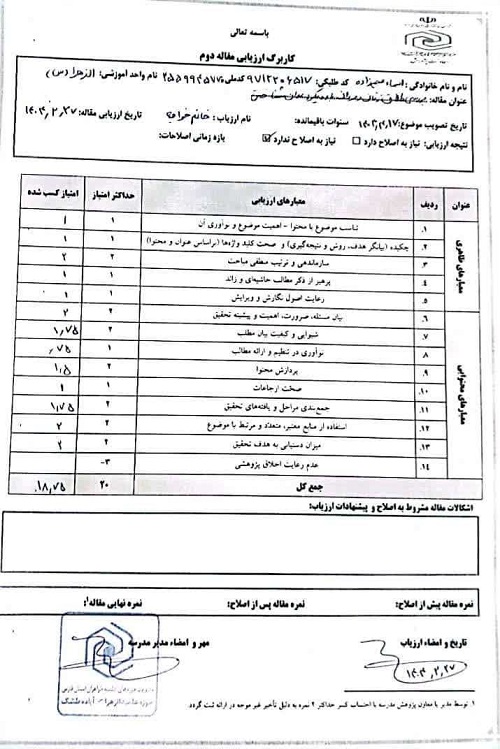 باسمه تعالی
کاربرگ ارزیابی مقاله دوم
نام و نام خانوادگی: اسماء کد طلبگی: ۹۷۱۲۲۰۶۵۱۷ کدملی: نام واحد آموزشی: الزهرا (س)
عنوان مقاله:
تاریخ تصویب موضوع: سنوات باقیمانده: نام ارزیاب: خانم تاریخ ارزیابی مقاله: ۱۴۰۳,۲,۲۷
نتیجه ارزیابی: نیاز به اصلاح دارد ☐ نیاز به اصلاح ندارد ☑ بازه زمانی اصلاحات:
عنوان ردیف معیارهای ارزیابی حداکثر امتیاز امتیاز کسب شده
معیارهای ظاهری
۱. تناسب موضوع با محتوا - اهمیت موضوع و نوآوری آن ۱ ۱
۲. چکیده (بیانگر هدف، روش و نتیجه‌گیری) و صحت کلید واژه‌ها (براساس عنوان و محتوا) ۱ ۱
۳. سازماندهی و ترتیب منطقی مباحث ۲ ۲
۴. پرهیز از ذکر مطالب حاشیه‌ای و زائد ۱ ۱
۵. رعایت اصول نگارش و ویرایش ۱ ۱
معیارهای محتوایی
۶. بیان مسئله، ضرورت، اهمیت و پیشینه تحقیق ۲ ۲
۷. شیوایی و کیفیت بیان مطلب ۲ ۱,۷۵
۸. نوآوری در تنظیم و ارائه مطالب ۱ ,۷۵
۹. پردازش محتوا ۲ ۱,۵
۱۰. صحت ارجاعات ۱ ۱
۱۱. جمع‌بندی مراحل و یافته‌های تحقیق ۲ ۱,۷۵
۱۲. استفاده از منابع معتبر، متعدد و مرتبط با موضوع ۲ ۲
۱۳. میزان دستیابی به هدف تحقیق ۲ ۲
۱۴. عدم رعایت اخلاق پژوهشی ۳-
جمع کل ۲۰ ۱۸,۷۵
اشکالات مقاله مشروط به اصلاح و پیشنهادات ارزیاب:
نمره مقاله پیش از اصلاح: نمره مقاله پس از اصلاح: نمره نهایی مقاله¹:
تاریخ و امضاء ارزیاب مهر و امضاء مدیر مدرسه
۱۴۰۳,۲,۲۷
۱ توسط مدیر یا معاون پژوهش مدرسه با احتساب کسر حداکثر ۲ نمره به دلیل تأخیر غیر موجه در ارائه ثبت گردد.